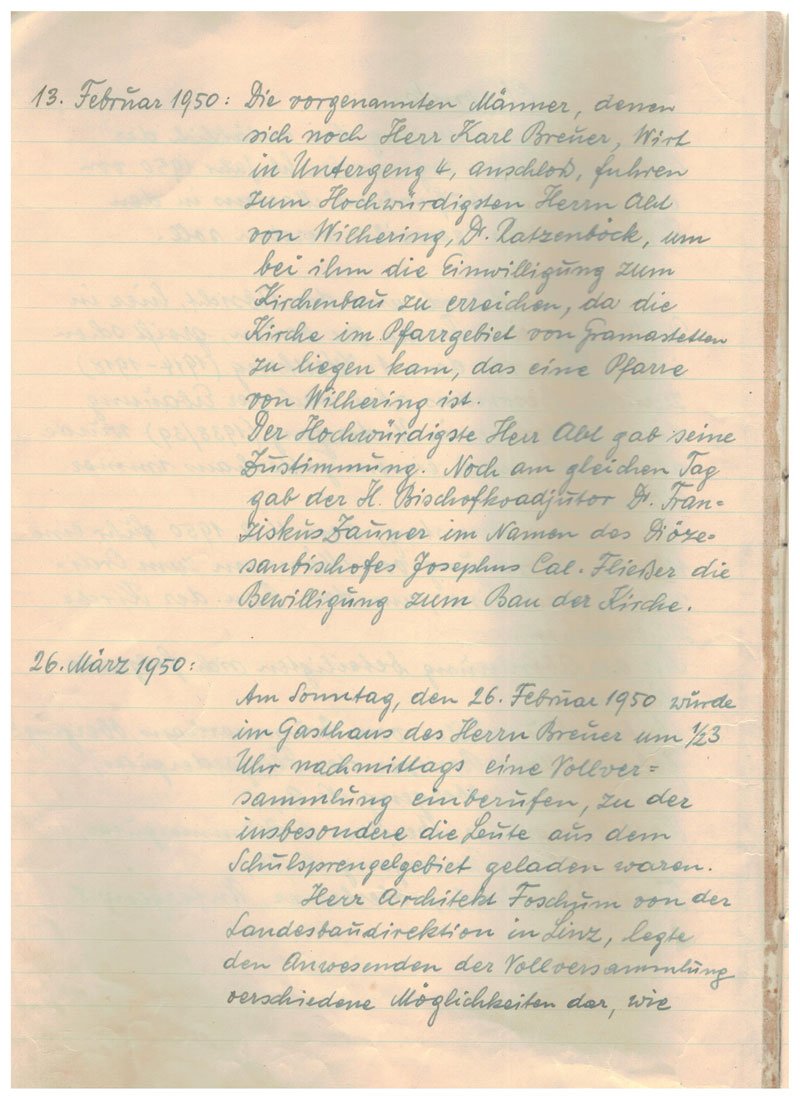 13. Februar 1950: Die vorgenannten Männer, denen
sich noch Herr Karl Breuer, Wirt
in Untergeng 4, anschloß, fuhren
zum Hochwürdigsten Herrn Abt
von Wilhering, Dr. Ratzenböck, um
bei ihm die Einwilligung zum
Kirchenbau zu erreichen, da die
Kirche im Pfarrgebiet von Gramastetten
zu liegen kam, das eine Pfarre
von Wilhering ist.
Der Hochwürdigste Herr Abt gab seine
Zustimmung. Noch am gleichen Tag
gab der H. Bischofkoadjutor Dr. Fran-
ziskus Zauner im Namen des Diöze-
sanbischofes Josephus Cal. Fließer die
Bewilligung zum Bau der Kirche.
26. März 1950:
Am Sonntag, den 26. Februar 1950 wurde
im Gasthaus des Herrn Breuer um 1/23
Uhr nachmittags eine Vollver=
sammlung einberufen, zu der
insbesondere die Leute aus dem
Schulsprengelgebiet geladen waren.
Herr Architekt Foschum von der
Landesbaudirektion in Linz, legte
den Anwesenden der Vollversammlung
verschiedene Möglichkeiten dar, wie